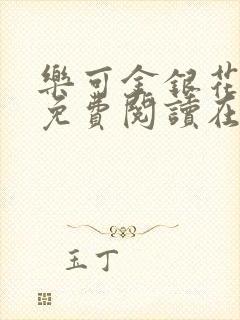 樂可金銀花
免費閱讀在
玉丁